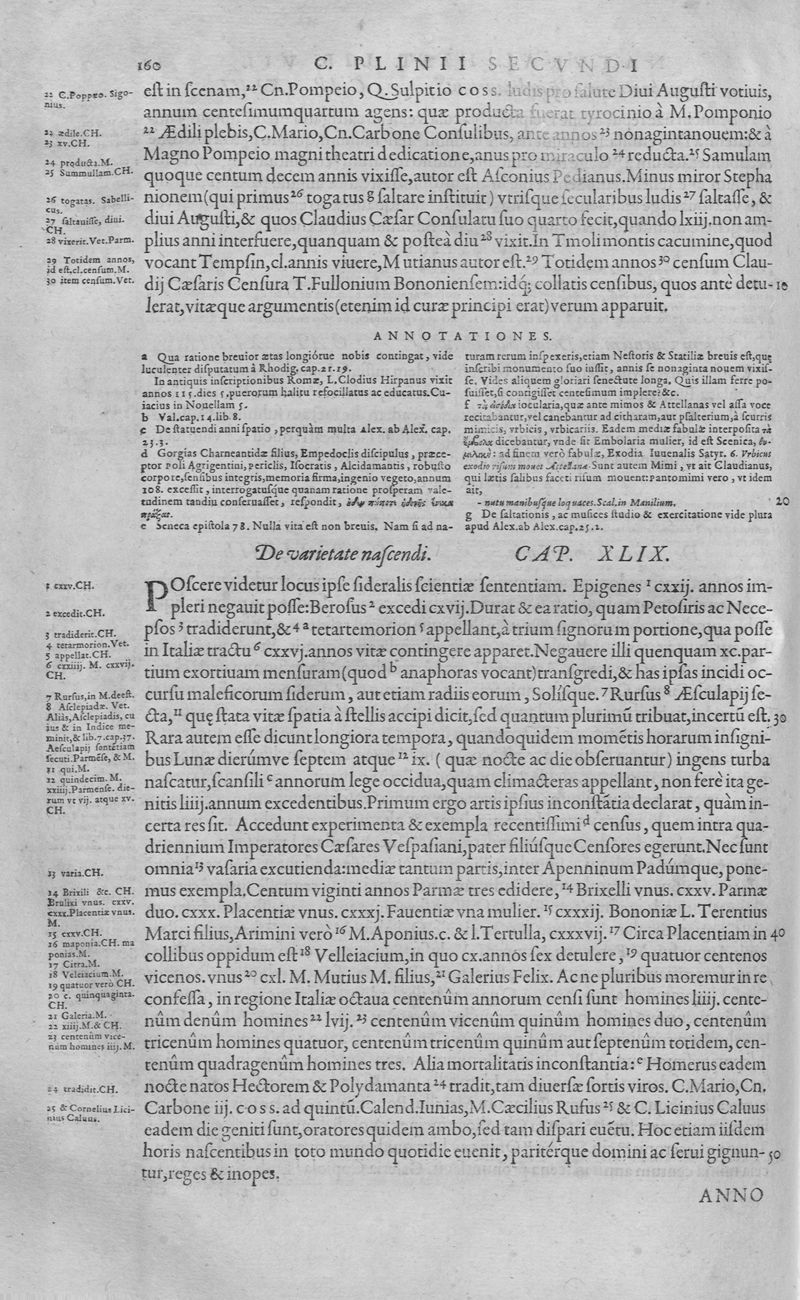 160 C. PLINII SECVNDI
22 C. Poppeo. Sigonius.
22 ædile.CH.
23 xv.CH.
24 producta.M.
25 Summullam.CH.
26 togatas. Sabellicus.
27 saltauisse, diui. CH.
28 vixerit.Vet.Parm.
29 Totidem annos, id est.cl.censum.M.
30 item censum.Vet.
est in scenam,²² Cn.Pompeio, Q.Sulpitio coss. ludis pro salute Diui Augusti votiuis,
annum centesimumquartum agens: quæ producta fuerat tyrocinio à M.Pomponio
²² Ædili plebis,C.Mario,Cn.Carbone Consulibus, ante annos ²³ nonagintanouem:& à
Magno Pompeio magni theatri dedicatione,anus pro miraculo ²⁴ reducta.²⁵ Samulam
quoque centum decem annis vixisse,autor est Asconius Pedianus.Minus miror Stepha
nionem(qui primus²⁶ togatus g saltare instituit) vtrisque secularibus ludis²⁷ saltasse, &
diui Augusti,& quos Claudius Cæsar Consulatu suo quarto fecit,quando lxiij.non am-
plius anni interfuere,quanquam & posteà diu²⁸ vixit.In Tmoli montis cacumine,quod
vocant Tempsin,cl.annis viuere,Mutianus autor est.²⁹ Totidem annos³⁰ censum Clau-
dij Cæsaris Censura T.Fullonium Bononiensem:idq; collatis censibus, quos antè detu- 10
lerat,vitæque argumentis(etenim id curæ principi erat)verum apparuit.
ANNOTATIONES.
a Qua ratione breuior ætas longiórue nobis contingat, vide
luculenter disputatum à Rhodig.cap.21.19.
In antiquis inscriptionibus Romæ, L.Clodius Hirpanus vixit
annos 115.dies 5.puerorum halitu refocillatus ac educatus.Cu-
iacius in Nouellam 5.
b Val.cap.14.lib.8.
c De statuendi anni spatio, perquàm multa Alex. ab Alex. cap.
23.3.
d Gorgias Charneantidæ filius, Empedoclis discipulus, præce-
ptor Poli Agrigentini, periclis, Isocratis, Alcidamantis, robusto
corpore,sensibus integris,memoria firma,ingenio vegeto,annum
108. excessit, interrogatusque quanam ratione prosperam vale-
tudinem tandiu conseruasset, respondit,
e Seneca epistola 78. Nulla vita est non breuis. Nam si ad na-
turam rerum inspexeris,etiam Nestoris & Statiliæ breuis est,quę
inscribi monumento suo iussit, annis se nonaginta nouem vixis-
se. Vides aliquem gloriari senectute longa. Quis illam ferre po-
tuisset,si contigisset centesimum implere?&c.
f iocularia,quæ ante mimos & Attellanas vel assa voce
recitabantur,vel canebantur ad citharam,aut psalterium,à scurris
mimicis, vrbicis, vrbicariis. Eadem mediæ fabulæ interposita τὰ
dicebantur, vnde sit Embolaria mulier, id est Scenica,
ad finem verò fabulæ, Exodia. Iuuenalis Satyr. 6. Vrbicus
exodio risum mouet Attellanæ. Sunt autem Mimi, vt ait Claudianus,
qui lætis salibus faceti risum mouent:Pantomimi vero, vt idem
ait,
- nutu manibusque loquaces.Scal.in Manilium. 20
g De saltationis, ac musices studio & exercitatione vide plura
apud Alex.ab Alex.cap.25.2.
De varietate nascendi. CAP. XLIX.
1 cxxv.CH.
2 excedit.CH.
3 tradiderit.CH.
4 tetarmorion.Vet.
5 appellat.CH.
6 cxxiiij. M. cxxvij. CH.
7 Rursus,in M.deest.
8 Asclepiadæ. Vet. Aliàs,Asclepiadis, cuius & in Indice meminit,& lib.7.cap.37. Aesculapij sententiam secuti.Parmése, & M.
11 qui.M.
12 quindecim.M. xxiij.Parmense. dierum vt vij. atque xv. CH.
13 varia.CH.
14 Brixili &c. CH. Bruixi vnus. cxxv. cxxx.Placentiæ vnus. M.
15 cxxv.CH.
16 maponia.CH. maponias.M.
17 Citra.M.
18 Veleiacium.M.
19 quatuor verò CH.
20 c. quinquaginta. CH.
21 Galeria.M.
22 xiiij.M.& CH.
23 centenûm vicenûm homines iiij.M.
24 tradidit.CH.
25 & Cornelius Licinius Caluus.
POscere videtur locus ipse sideralis scientiæ sententiam. Epigenes ¹ cxxij. annos im-
pleri negauit posse:Berosus² excedi cxvij.Durat & ea ratio, quam Petosiris ac Nece-
psos ³ tradiderunt,&⁴ a tetartemorion ⁵ appellant,à trium signorum portione,qua posse
in Italiæ tractu ⁶ cxxvj.annos vitæ contingere apparet.Negauere illi quenquam xc.par-
tium exortiuam mensuram(quod b anaphoras vocant)transgredi,& has ipsas incidi oc-
cursu maleficorum siderum, aut etiam radiis eorum, Solísque.⁷ Rursus ⁸ Æsculapij se-
cta,¹¹ quę stata vitæ spatia à stellis accipi dicit,sed quantum plurimũ tribuat,incertũ est. 30
Rara autem esse dicunt longiora tempora, quandoquidem momẽtis horarum insigni-
bus Lunæ dierúmve septem atque ¹² ix. ( quæ nocte ac die obseruantur) ingens turba
nascatur,scansili c annorum lege occidua,quam climacteras appellant, non ferè ita ge-
nitis liiij.annum excedentibus.Primum ergo artis ipsius inconstãtia declarat, quàm in-
certa res sit. Accedunt experimenta & exempla recentissimi d census, quem intra qua-
driennium Imperatores Cæsares Vespasiani,pater filiúsque Censores egerunt.Nec sunt
omnia¹³ vasaria excutienda:mediæ tantum partis,inter Apenninum Padúmque, pone-
mus exempla.Centum viginti annos Parmæ tres edidere, ¹⁴ Brixelli vnus. cxxv. Parmæ
duo. cxxx. Placentiæ vnus. cxxxj. Fauentiæ vna mulier. ¹⁵ cxxxij. Bononiæ L. Terentius
Marci filius,Arimini verò ¹⁶ M.Aponius.c. & l.Tertulla, cxxxvij. ¹⁷ Circa Placentiam in 40
collibus oppidum est ¹⁸ Velleiacium,in quo cx.annos sex detulere, ¹⁹ quatuor centenos
vicenos.vnus ²⁰ cxl. M. Mutius M. filius,²¹ Galerius Felix. Ac ne pluribus moremur in re
confessa, in regione Italiæ octaua centenûm annorum censi sunt homines liiij. cente-
nûm denûm homines ²² lvij. ²³ centenûm vicenûm quinûm homines duo, centenûm
tricenûm homines quatuor, centenûm tricenûm quinûm aut septenûm totidem, cen-
tenûm quadragenûm homines tres. Alia mortalitatis inconstantia: e Homerus eadem
nocte natos Hectorem & Polydamanta ²⁴ tradit,tam diuersæ sortis viros. C.Mario,Cn.
Carbone iij. coss. ad quintũ.Calend.Iunias,M.Cæcilius Rufus²⁵ & C. Licinius Caluus
eadem die geniti sunt,oratores quidem ambo,sed tam dispari euẽtu. Hoc etiam iisdem
horis nascentibus in toto mundo quotidie euenit, paritérque domini ac serui gignun- 50
tur,reges & inopes.
ANNO